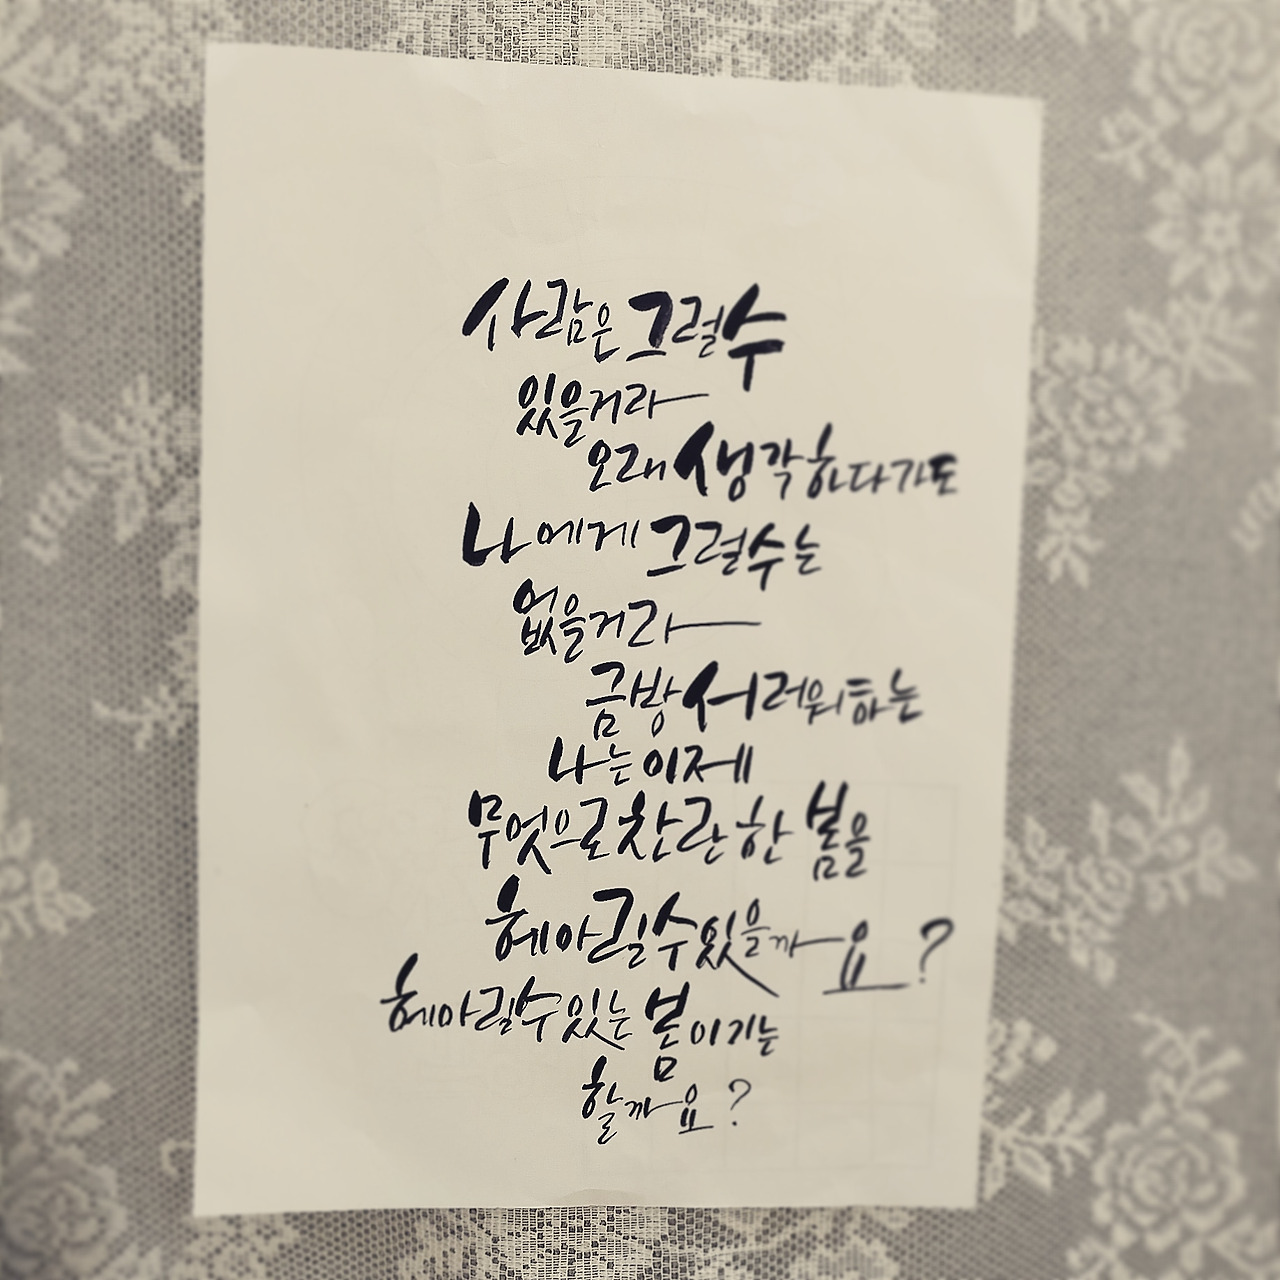 사람은 그럴수
있을거라
오래 생각하다가도
나에게 그럴수는
없을거라
금방 서러워하는
나는 이제
무엇으로 찬란한 봄을
헤아릴수있을까요?
헤아릴수있는 봄이기는
할까요?